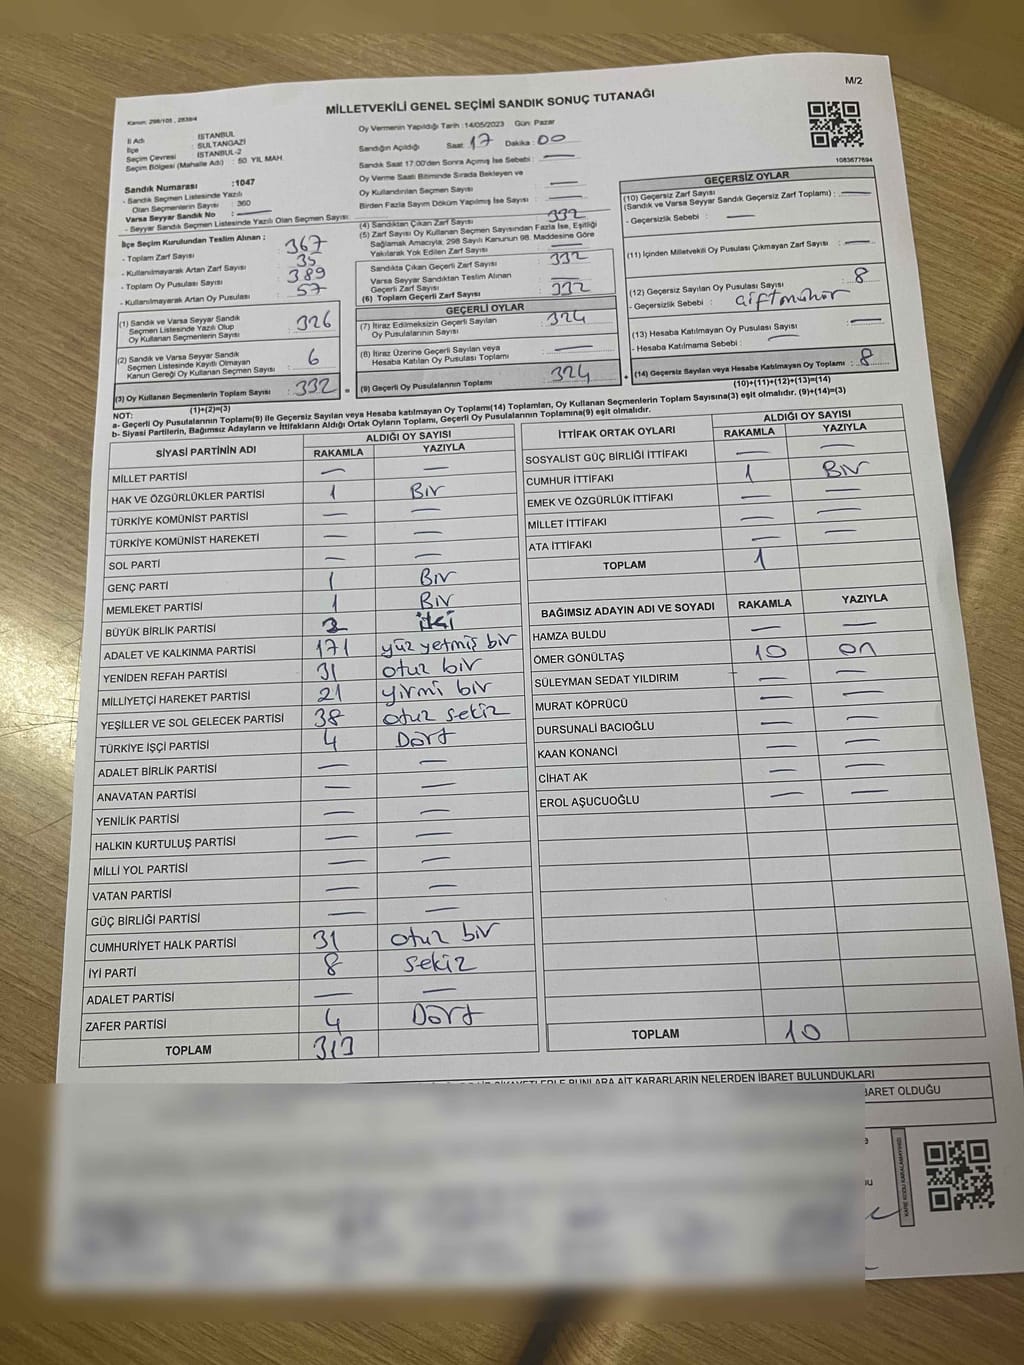 M/2
MİLLETVEKİLİ GENEL SEÇİMİ SANDIK SONUÇ TUTANAĞI
Kanun: 298/105 , 2839/4
İl Adı : İSTANBUL
İlçe : SULTANGAZİ
Seçim Çevresi : İSTANBUL-2
Seçim Bölgesi (Mahalle Adı) : 50. YIL MAH.
Sandık Numarası :1047
- Sandık Seçmen Listesinde Yazılı
Olan Seçmenlerin Sayısı : 360
Varsa Seyyar Sandık No : —
- Seyyar Sandık Seçmen Listesinde Yazılı Olan Seçmen Sayısı:
İlçe Seçim Kurulundan Teslim Alınan ;
- Toplam Zarf Sayısı : 367
- Kullanılmayarak Artan Zarf Sayısı : 35
- Toplam Oy Pusulası Sayısı : 389
- Kullanılmayarak Artan Oy Pusulası : 57
(1) Sandık ve Varsa Seyyar Sandık
Seçmen Listesinde Yazılı Olup
Oy Kullanan Seçmenlerin Sayısı : 326
(2) Sandık ve Varsa Seyyar Sandık
Seçmen Listesinde Kayıtlı Olmayan
Kanun Gereği Oy Kullanan Seçmen Sayısı : 6
(3) Oy Kullanan Seçmenlerin Toplam Sayısı : 332 =
(1)+(2)=(3)
Oy Vermenin Yapıldığı Tarih :14/05/2023 Gün: Pazar
Sandığın Açıldığı Saat: 17 Dakika : 00
Sandık Saat 17.00'den Sonra Açımış İse Sebebi : —
Oy Verme Saati Bitiminde Sırada Bekleyen ve
Oy Kullandırılan Seçmen Sayısı : —
Birden Fazla Sayım Döküm Yapılmış İse Sayısı : —
(4) Sandıktan Çıkan Zarf Sayısı : 332
(5) Zarf Sayısı Oy Kullanan Seçmen Sayısından Fazla İse, Eşitliği
Sağlamak Amacıyla; 298 Sayılı Kanunun 98. Maddesine Göre
Yakılarak Yok Edilen Zarf Sayısı : —
Sandıkta Çıkan Geçerli Zarf Sayısı : 332
Varsa Seyyar Sandıktan Teslim Alınan
Geçerli Zarf Sayısı : —
(6) Toplam Geçerli Zarf Sayısı : 332
GEÇERLİ OYLAR
(7) İtiraz Edilmeksizin Geçerli Sayılan
Oy Pusulalarının Sayısı : 324
(8) İtiraz Üzerine Geçerli Sayılan veya
Hesaba Katılan Oy Pusulası Toplamı : —
(9) Geçerli Oy Pusulalarının Toplamı : 324 +
1083677694
GEÇERSİZ OYLAR
(10) Geçersiz Zarf Sayısı
(Sandık ve Varsa Seyyar Sandık Geçersiz Zarf Toplamı) : —
- Geçersizlik Sebebi : —
(11) İçinden Milletvekili Oy Pusulası Çıkmayan Zarf Sayısı : —
(12) Geçersiz Sayılan Oy Pusulası Sayısı : 8
- Geçersizlik Sebebi : çift mühür
(13) Hesaba Katılmayan Oy Pusulası Sayısı : —
- Hesaba Katılmama Sebebi : —
(14) Geçersiz Sayılan veya Hesaba Katılmayan Oy Toplamı : 8
(10)+(11)+(12)+(13)=(14)
NOT:
a- Geçerli Oy Pusulalarının Toplamı(9) ile Geçersiz Sayılan veya Hesaba katılmayan Oy Toplamı(14) Toplamları, Oy Kullanan Seçmenlerin Toplam Sayısına(3) eşit olmalıdır. (9)+(14)=(3)
b- Siyasi Partilerin, Bağımsız Adayların ve İttifakların Aldığı Ortak Oyların Toplamı, Geçerli Oy Pusulalarının Toplamına(9) eşit olmalıdır.
SİYASİ PARTİNİN ADI ALDIĞI OY SAYISI
RAKAMLA YAZIYLA
MİLLET PARTİSİ — —
HAK VE ÖZGÜRLÜKLER PARTİSİ 1 Bir
TÜRKİYE KOMÜNİST PARTİSİ — —
TÜRKİYE KOMÜNİST HAREKETİ — —
SOL PARTİ — —
GENÇ PARTİ 1 Bir
MEMLEKET PARTİSİ 1 Bir
BÜYÜK BİRLİK PARTİSİ 2 iki
ADALET VE KALKINMA PARTİSİ 171 yüz yetmiş bir
YENİDEN REFAH PARTİSİ 31 otuz bir
MİLLİYETÇİ HAREKET PARTİSİ 21 yirmi bir
YEŞİLLER VE SOL GELECEK PARTİSİ 38 otuz sekiz
TÜRKİYE İŞÇİ PARTİSİ 4 Dört
ADALET BİRLİK PARTİSİ — —
ANAVATAN PARTİSİ — —
YENİLİK PARTİSİ — —
HALKIN KURTULUŞ PARTİSİ — —
MİLLİ YOL PARTİSİ — —
VATAN PARTİSİ — —
GÜÇ BİRLİĞİ PARTİSİ — —
CUMHURİYET HALK PARTİSİ 31 otuz bir
İYİ PARTİ 8 sekiz
ADALET PARTİSİ — —
ZAFER PARTİSİ 4 Dört
TOPLAM 313
İTTİFAK ORTAK OYLARI ALDIĞI OY SAYISI
RAKAMLA YAZIYLA
SOSYALİST GÜÇ BİRLİĞİ İTTİFAKI — —
CUMHUR İTTİFAKI 1 Bir
EMEK VE ÖZGÜRLÜK İTTİFAKI — —
MİLLET İTTİFAKI — —
ATA İTTİFAKI — —
TOPLAM 1
BAĞIMSIZ ADAYIN ADI VE SOYADI RAKAMLA YAZIYLA
HAMZA BULDU — —
ÖMER GÖNÜLTAŞ 10 on
SÜLEYMAN SEDAT YILDIRIM — —
MURAT KÖPRÜCÜ — —
DURSUNALİ BACIOĞLU — —
KAAN KONANCİ — —
CİHAT AK — —
EROL AŞUCUOĞLU — —
TOPLAM 10
BUNLARA AİT KARARLARIN NELERDEN İBARET BULUNDUKLARI
İBARET OLDUĞU